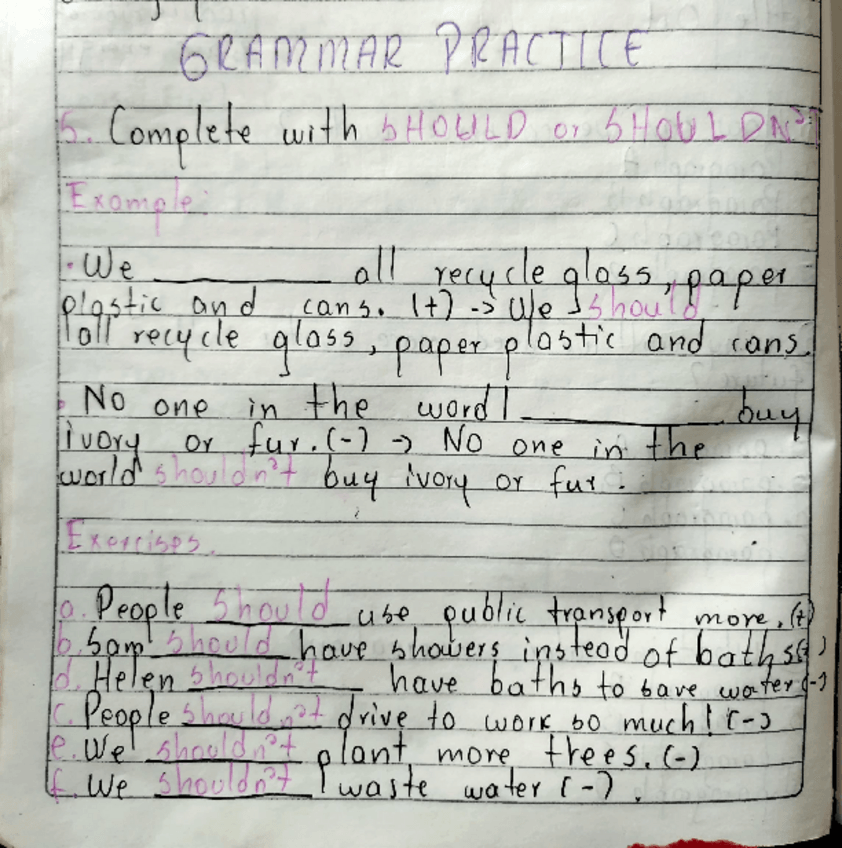 GRAMMAR PRACTICE
5. Complete with SHOULD or SHOULDN'T
Example:
• We ________ all recycle glass, paper
plastic and cans. (+) -> We should
all recycle glass, paper plastic and cans.
• No one in the word| ________ buy
ivory or fur. (-) -> No one in the
world shouldn't buy ivory or fur.
Exercises.
a. People should use public transport more. (+)
b. Sam should have showers instead of baths (+)
d. Helen shouldn't have baths to save water (-)
c. People shouldn't drive to work so much! (-)
e. We shouldn't plant more trees. (-)
f. We shouldn't waste water (-).